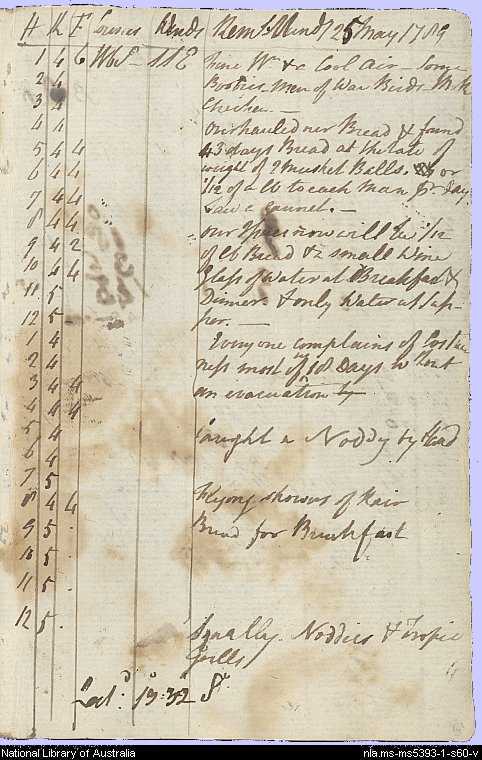 H K F Courses Winds Remks Mond 25 May 1789
1 4 6 WbS SSE Fine Wr & c Cool Air - Some
2 4 Boobies Men of War Birds M.
3 4 Chicken. —
4 4 Overhauled our Bread & found
5 4 4 43 days Bread at the rate of
6 4 4 weight of 2 Musket Balls. or
7 4 4 1/12 of a lb to each Man pr day
8 4 4 Saw a Gannet. —
9 4 2 our now will be 1/12
10 4 4 of lb Bread & a small Wine
11 5 Glass of Water at Breakfast &
12 5 Dinner & only Water at Sup-
per. —
1 4 Every one complains of Costive
2 4 ness most of ym 18 Days without
3 4 4 an evacuation
4 4 4
5 4 Caught a Noddy by Hand
6 4
7 5
8 4 4 Strong showers of Rain
9 5 Bird for Breakfast
10 5
11 5
12 5 Squally. Noddies & Tropic
Gulls
Latd 13:32 S
National Library of Australia nla.ms-ms5393-1-s60-v